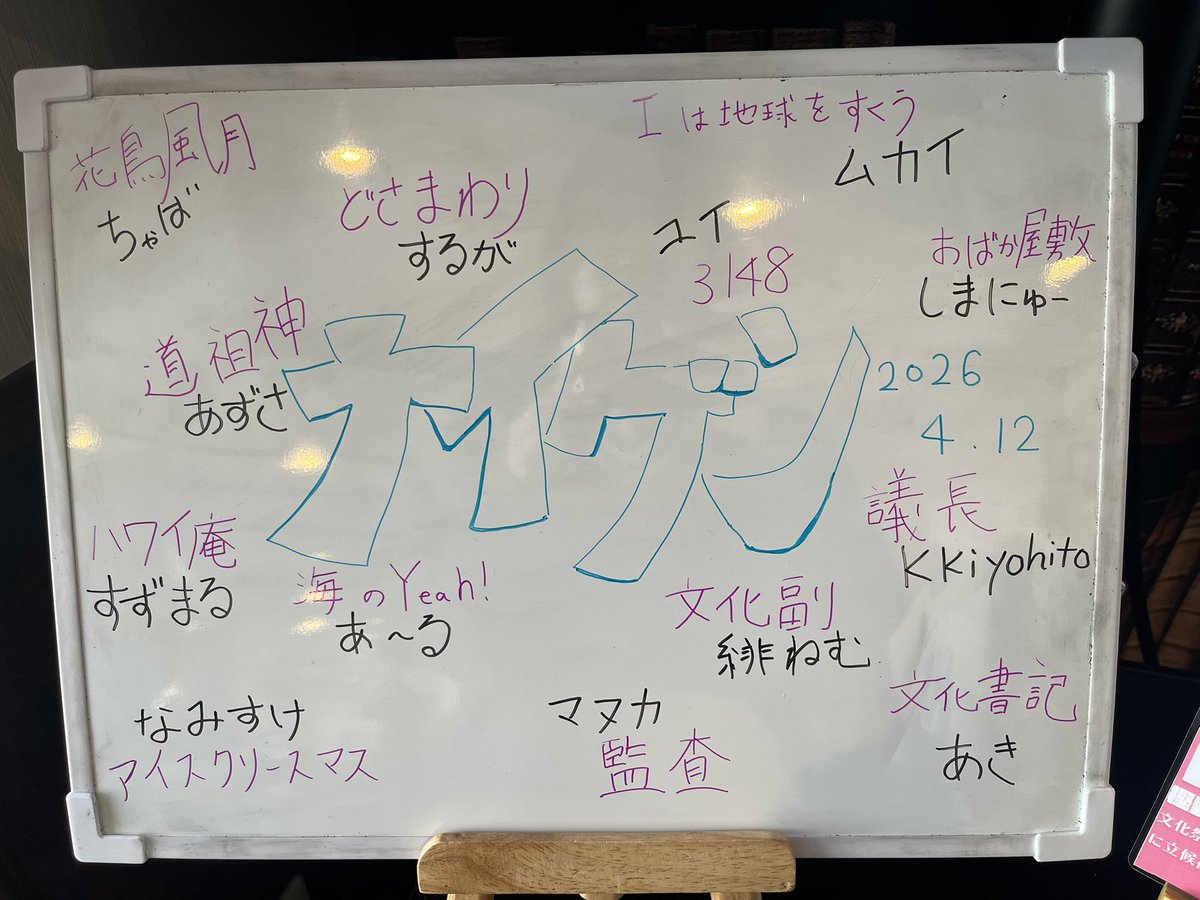 花鳥風月
ちゃば
どさまわり
するが
Iは地球をすくう
ムカイ
ユイ
3148
おばか屋敷
しまにゅー
道祖神
あずさ
ナイゲン
2026
4.12
議長
KKiyohito
ハワイ庵
すずまる
海のYeah!
あ〜る
文化副
緋ねむ
文化書記
あき
なみすけ
アイスクリースマス
マヌカ
監査
文化祭
に立候